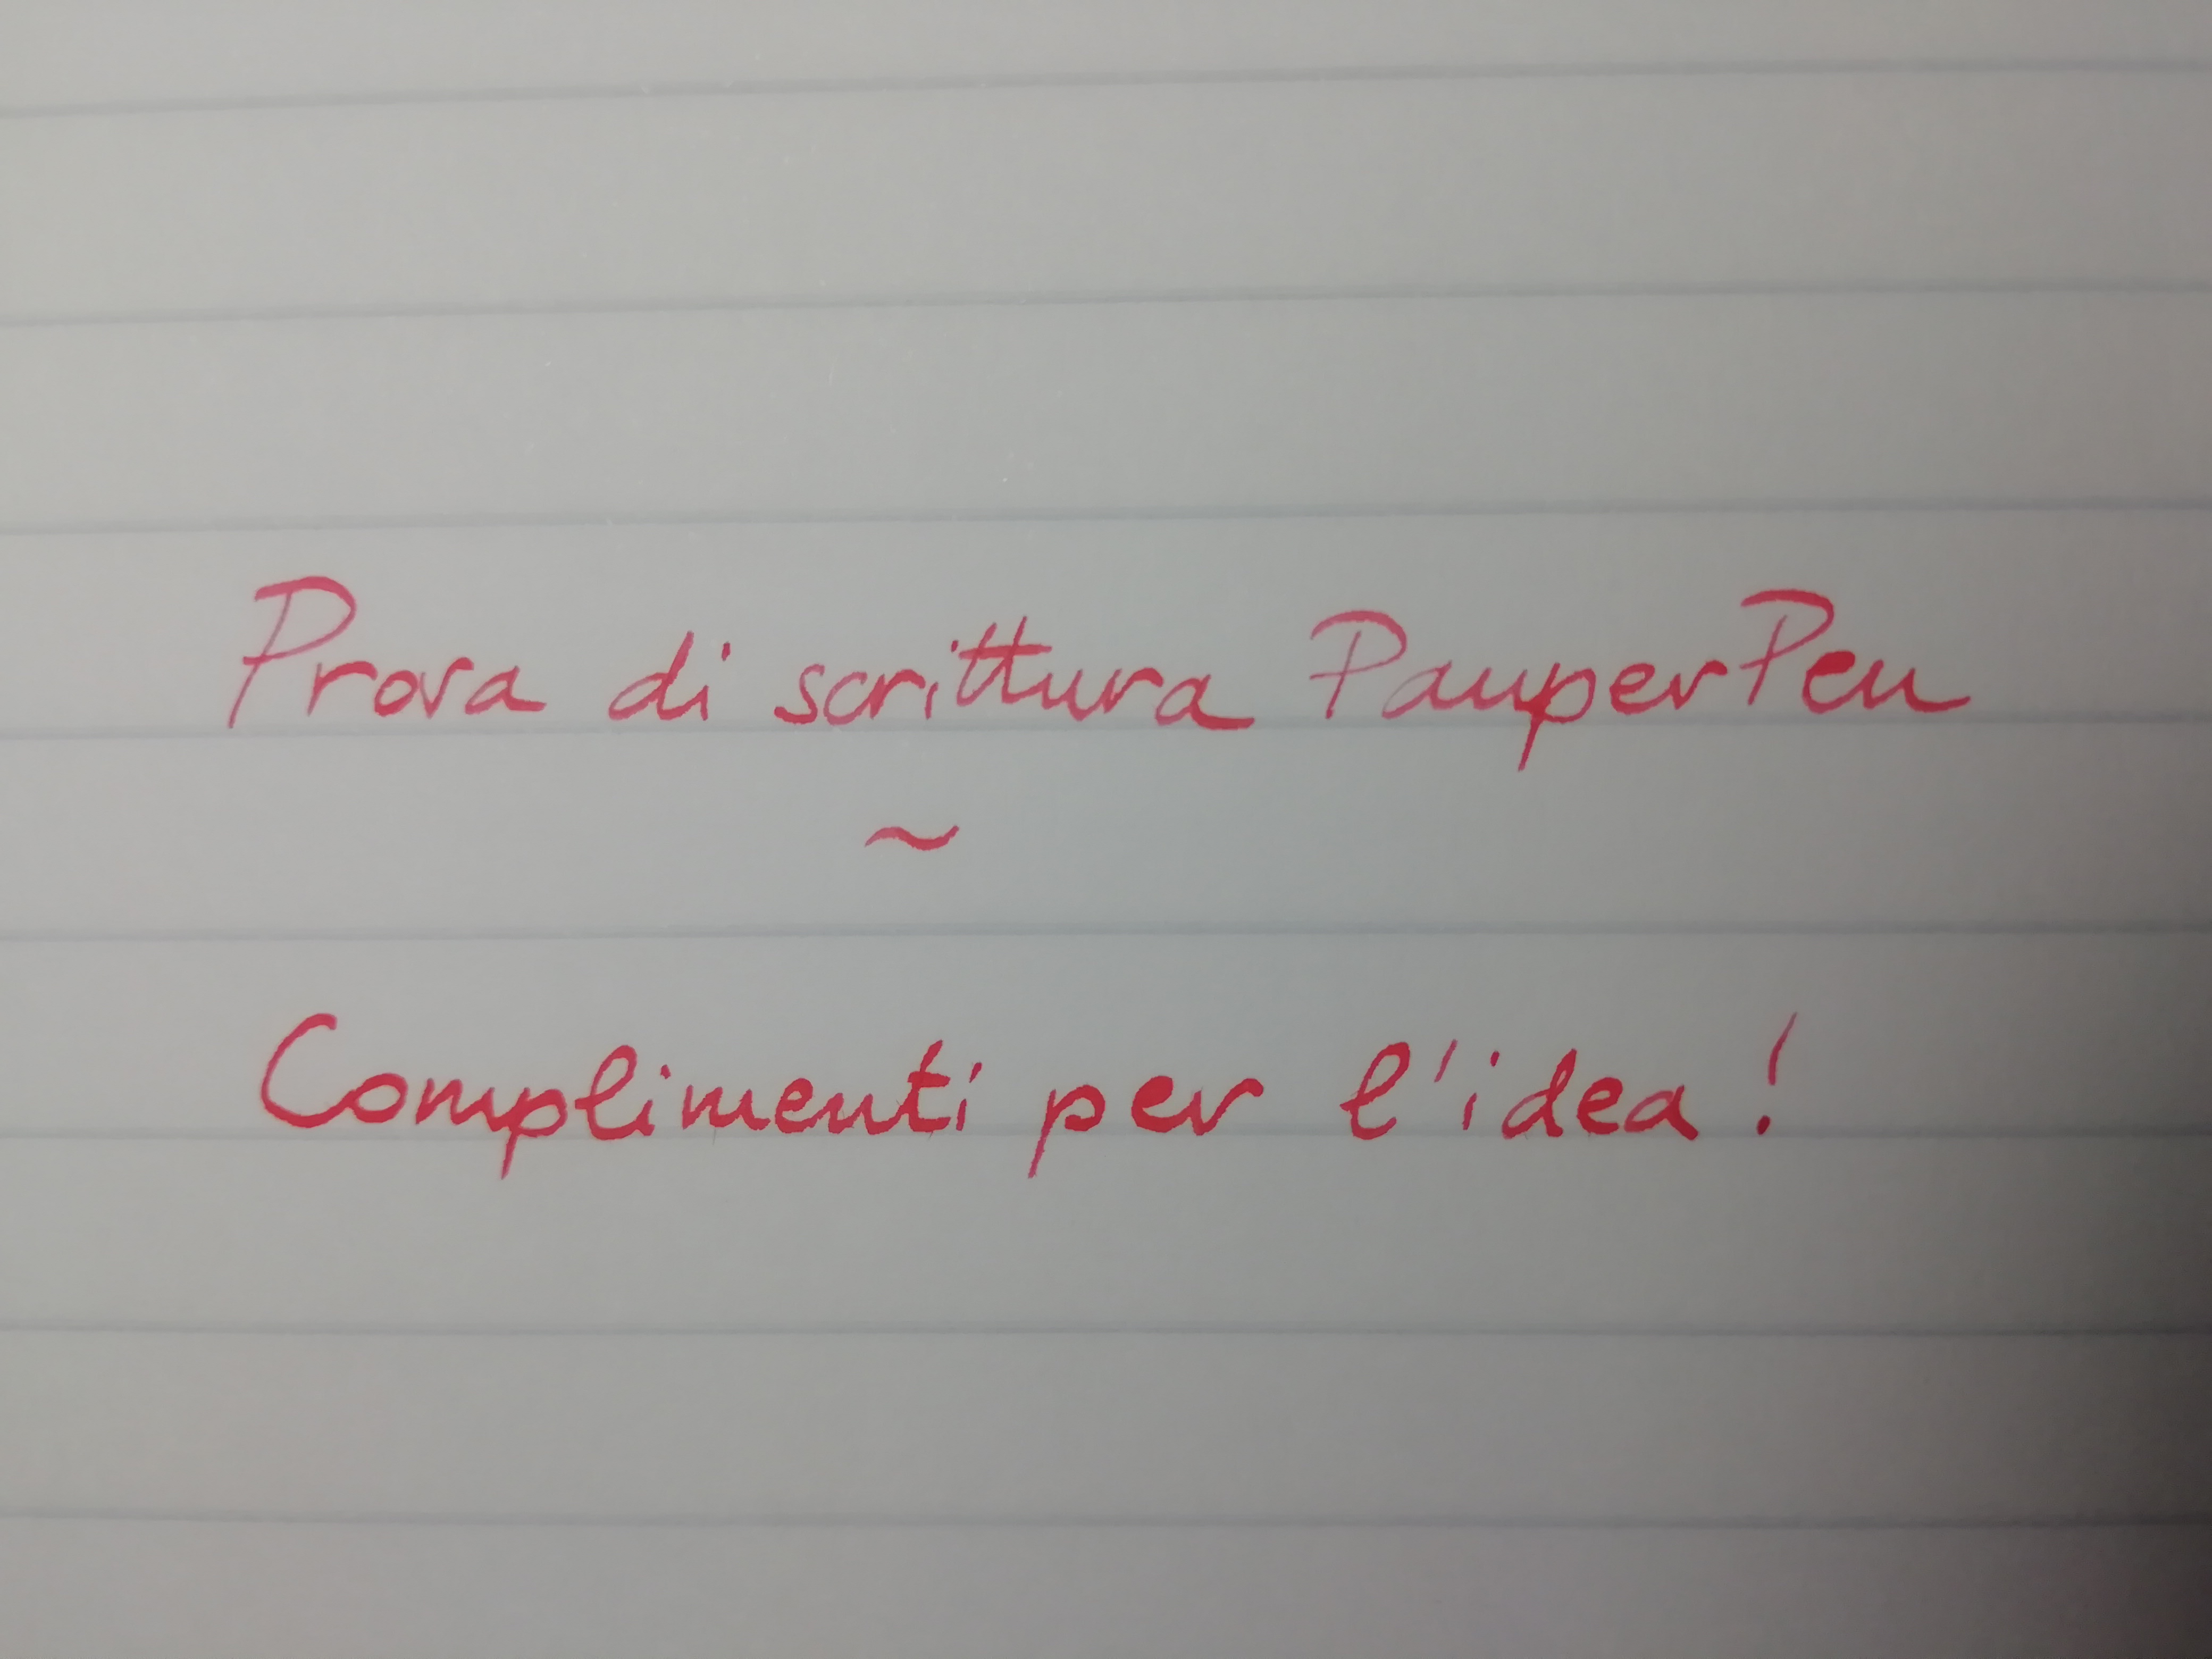 Prova di scrittura PauperPen
~
Complimenti per l'idea!